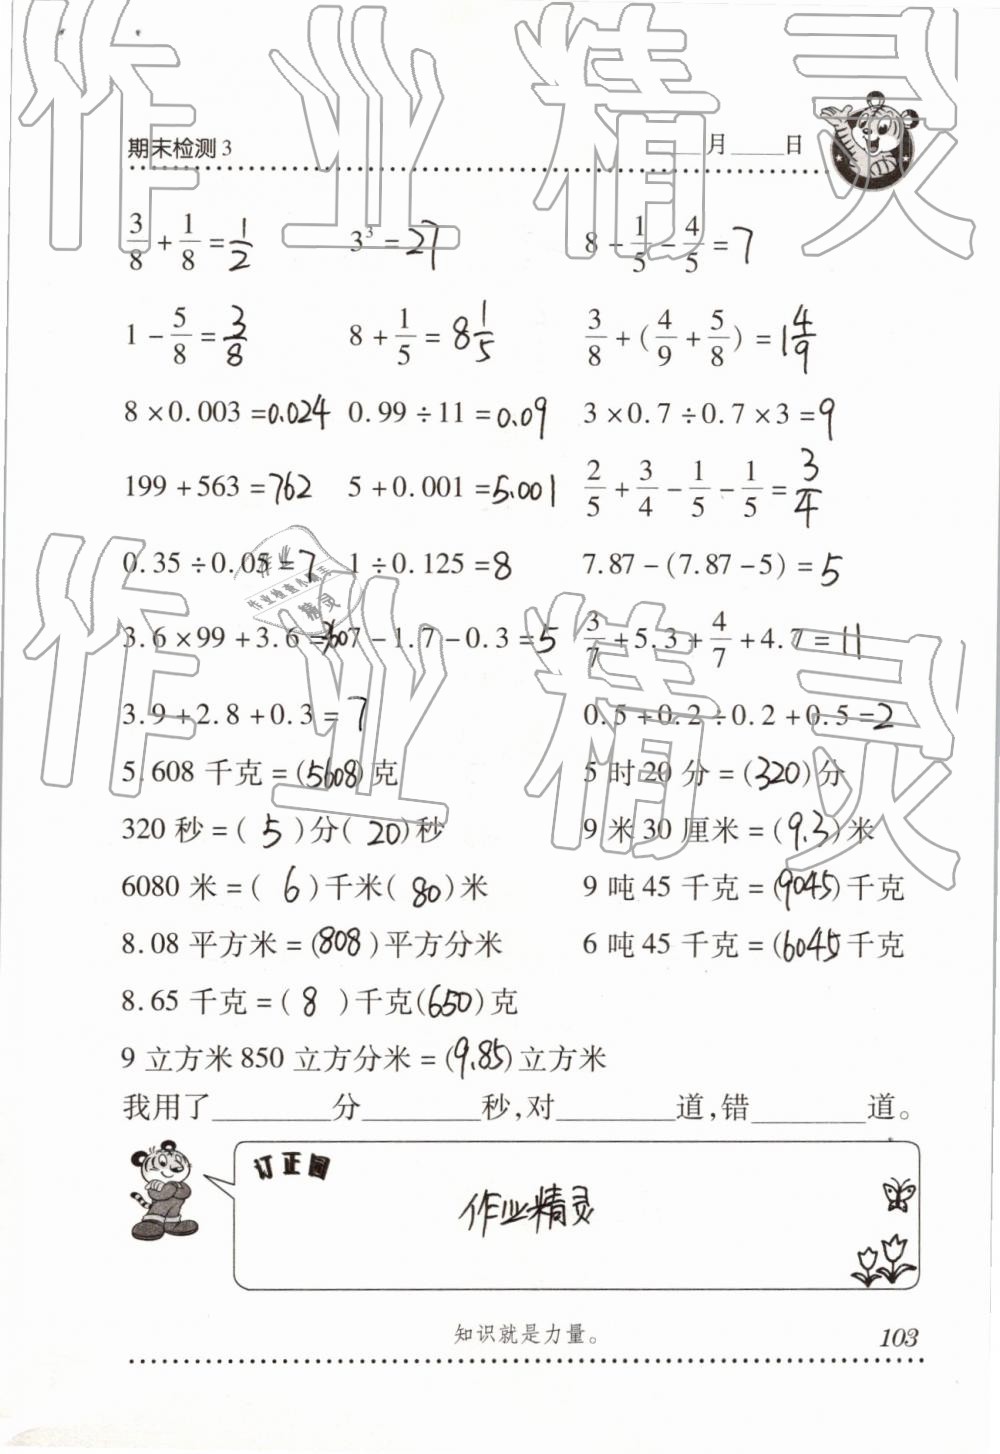 期末检测 3 ____月____日
3/8 + 1/8 = 1/2 3³ = 27 8 - 1/5 - 4/5 = 7
1 - 5/8 = 3/8 8 + 1/5 = 8 1/5 3/8 + (4/9 + 5/8) = 1 4/9
8 × 0.003 = 0.024 0.99 ÷ 11 = 0.09 3 × 0.7 ÷ 0.7 × 3 = 9
199 + 563 = 762 5 + 0.001 = 5.001 2/5 + 3/4 - 1/5 - 1/5 = 3/4
0.35 ÷ 0.05 = 7 1 ÷ 0.125 = 8 7.87 - (7.87 - 5) = 5
3.6 × 99 + 3.6 = 360 7 - 1.7 - 0.3 = 5 3/7 + 5.3 + 4/7 + 4.7 = 11
3.9 + 2.8 + 0.3 = 7 0.5 + 0.2 ÷ 0.2 + 0.5 = 2
5.608 千克 = (5608) 克 5 时 20 分 = (320) 分
320 秒 = ( 5 ) 分 ( 20 ) 秒 9 米 30 厘米 = (9.3) 米
6080 米 = ( 6 ) 千米 ( 80 ) 米 9 吨 45 千克 = (9045) 千克
8.08 平方米 = (808) 平方分米 6 吨 45 千克 = (6045 千克
8.65 千克 = ( 8 ) 千克 (650) 克
9 立方米 850 立方分米 = (9.85) 立方米
我用了________分________秒,对________道,错________道。
订正园
作业精灵
知识就是力量。
103
作业精灵
作业精灵
作业
作业检查小精灵
精灵